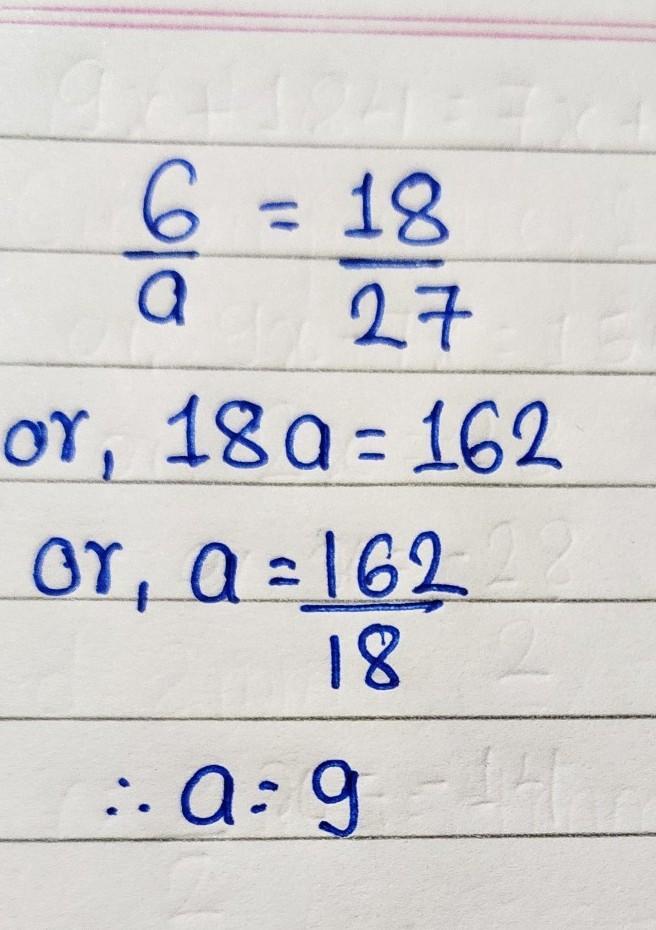 6/a = 18/27
or, 18a = 162
or, a = 162/18
∴ a = 9